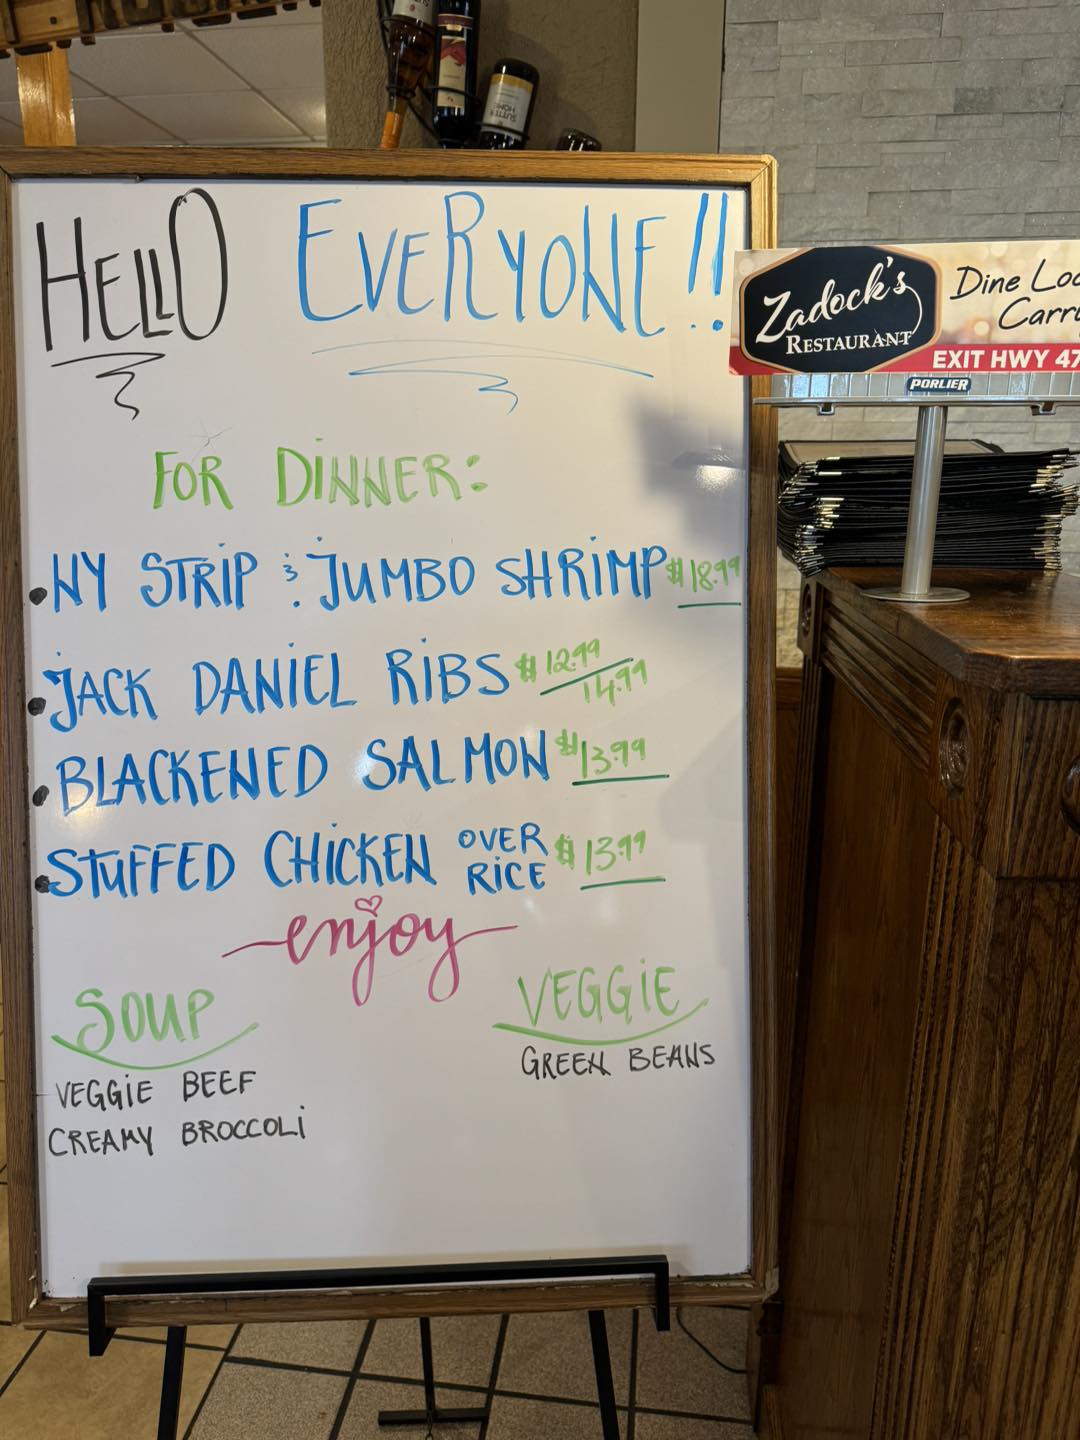 HELLO EVERYONE!!
FOR DINNER:
• NY STRIP & JUMBO SHRIMP $18.99
• JACK DANIEL RIBS $12.99/14.99
• BLACKENED SALMON $13.99
• STUFFED CHICKEN OVER RICE $13.99
enjoy
SOUP
VEGGIE BEEF
CREAMY BROCCOLI
VEGGIE
GREEN BEANS
Zadock's
RESTAURANT
Dine
EXIT HWY 47
PORLIER
SUTTER
HOME